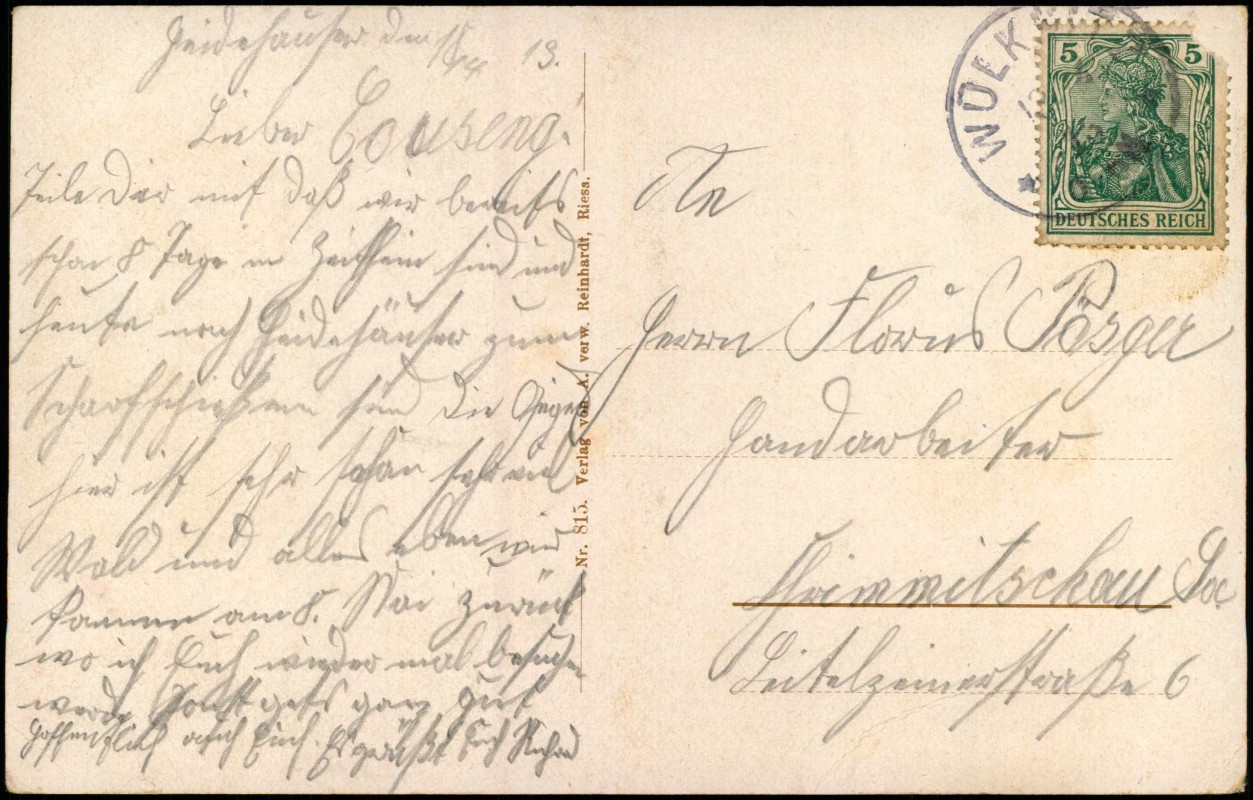 Heidehäuser den 13.
Lieber Couseng.
Teile Dir mit daß wir bereits
schon 8 Tage in Zeithain sind und
heute nach Heidehäuser zum
Scharfschießen sind die Gegend
hier ist sehr schön sehr viel
Wald und alles eben wir
kommen am 8. Mai zurück
wo ich Euch wieder mal besuchen
werde Sonst gets ganz gut
hoffentlich auch Euch. Es grüßt Euch Richard
Nr. 815. Verlag von A. verw. Reinhardt, Riesa.
WÜLK
5 5
DEUTSCHES REICH
An
Herrn Florus
Handarbeiter
Crimmitschau Sa
Leitelzeinerstraße 6